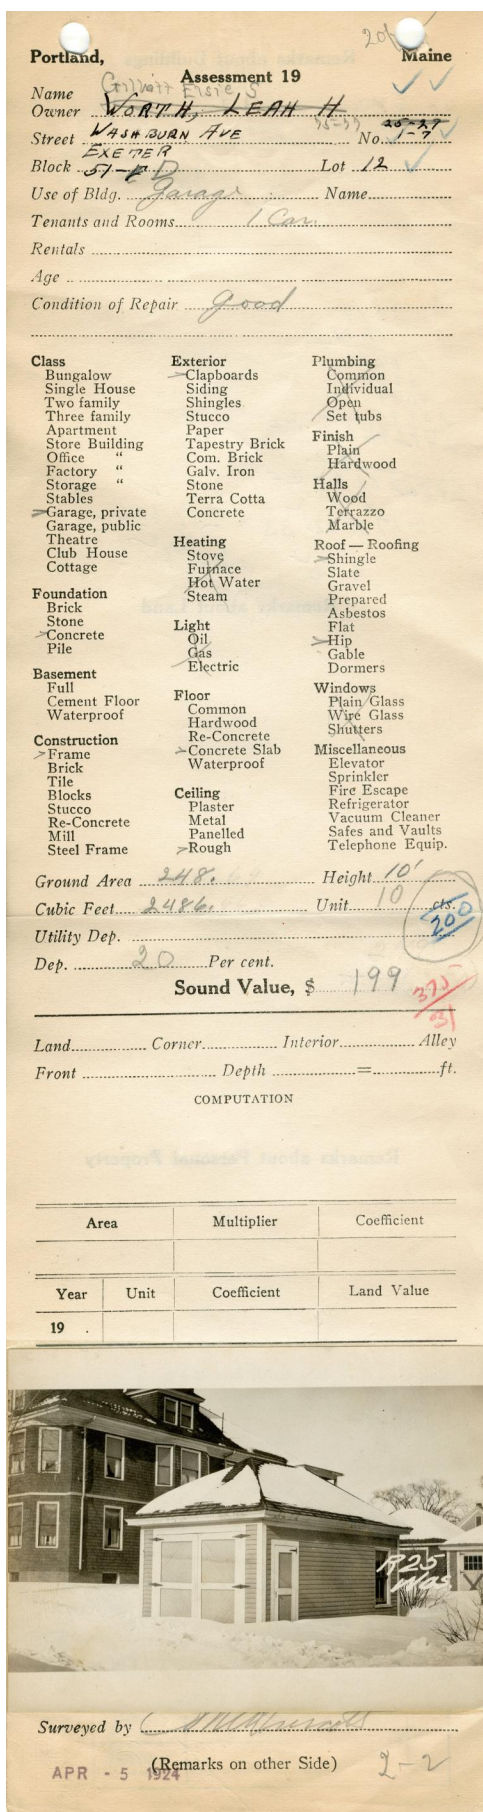 Portland, Maine
Assessment 19
Name
Owner WORTH, LEAH H
Street WASHBURN AVE No. 25-27 1-7
EXETER
Block 51-D Lot 12
Use of Bldg. Garage Name
Tenants and Rooms 1 Car.
Rentals
Age
Condition of Repair good
Class
Bungalow
Single House
Two family
Three family
Apartment
Store Building
Office "
Factory "
Storage "
Stables
Garage, private
Garage, public
Theatre
Club House
Cottage
Foundation
Brick
Stone
Concrete
Pile
Basement
Full
Cement Floor
Waterproof
Construction
Frame
Brick
Tile
Blocks
Stucco
Re-Concrete
Mill
Steel Frame
Exterior
Clapboards
Siding
Shingles
Stucco
Paper
Tapestry Brick
Com. Brick
Galv. Iron
Stone
Terra Cotta
Concrete
Heating
Stove
Furnace
Hot Water
Steam
Light
Oil
Gas
Electric
Floor
Common
Hardwood
Re-Concrete
Concrete Slab
Waterproof
Ceiling
Plaster
Metal
Panelled
Rough
Plumbing
Common
Individual
Open
Set tubs
Finish
Plain
Hardwood
Halls
Wood
Terrazzo
Marble
Roof — Roofing
Shingle
Slate
Gravel
Prepared
Asbestos
Flat
Hip
Gable
Dormers
Windows
Plain Glass
Wire Glass
Shutters
Miscellaneous
Elevator
Sprinkler
Fire Escape
Refrigerator
Vacuum Cleaner
Safes and Vaults
Telephone Equip.
Ground Area 248. Height 10'
Cubic Feet 2486. Unit 10 cts.
200
Utility Dep.
Dep. 20 Per cent.
Sound Value, $ 199
375
31
Land Corner Interior Alley
Front Depth = ft.
COMPUTATION
Area Multiplier Coefficient
Year Unit Coefficient Land Value
19
R25
Was.
Surveyed by
(Remarks on other Side) 2-2
APR - 5 1924